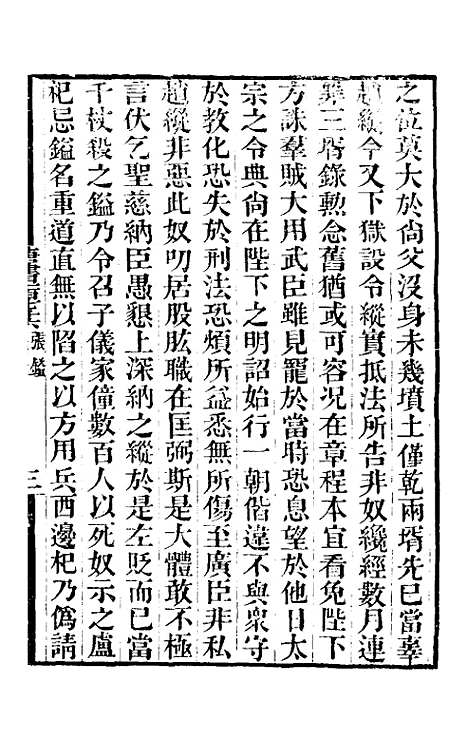 之位莫大於尚父沒身未幾墳土僅乾兩壻先已當辜
趙縱今又下獄設令縱實抵法所告非奴纔經數月連
罪三壻錄勲念舊猶或可容况在章程本宜看免陛下
方誅羣賊大用武臣雖見寵於當時恐息望於他日太
宗之令典尚在陛下之明詔始行一朝偕違不與衆守
於教化恐失於刑法恐煩所益悉無所傷至廣臣非私
趙縱非惡此奴叨居股肱職在匡弼斯是大體敢不極
言伏乞聖慈納臣愚懇上深納之縱於是左貶而已當
千杖殺之鎰乃令召子儀家僮數百人以死奴示之盧
杞忌鎰名重道直無以陷之以方用兵西邊杞乃僞請
張鎰
三